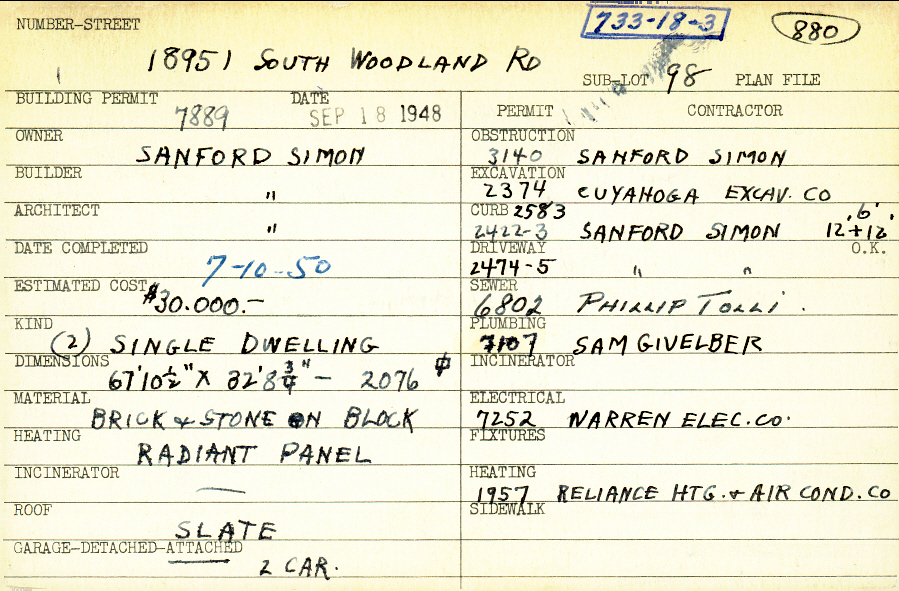 NUMBER-STREET
733-18-3
880
18951 SOUTH WOODLAND RD
SUB-LOT 98 PLAN FILE
BUILDING PERMIT 7889 DATE SEP 18 1948
PERMIT CONTRACTOR
OWNER SANFORD SIMON
OBSTRUCTION 3140 SANFORD SIMON
BUILDER "
EXCAVATION 2374 CUYAHOGA EXCAV. CO
ARCHITECT "
CURB 2583 6'
2422-3 SANFORD SIMON 12'+12'
DATE COMPLETED 7-10-50
DRIVEWAY 2474-5 " " O.K.
ESTIMATED COST $30.000.-
SEWER 6802 PHILLIP TOLLI.
KIND (2) SINGLE DWELLING
PLUMBING 7107 SAM GIVELBER
DIMENSIONS 67'10½" X 32'8¾" - 2076
INCINERATOR
MATERIAL BRICK & STONE ON BLOCK
ELECTRICAL 7252 WARREN ELEC. CO.
HEATING RADIANT PANEL
FIXTURES
INCINERATOR —
HEATING 1957 RELIANCE HTG. & AIR COND. CO
ROOF SLATE
SIDEWALK
GARAGE-DETACHED-ATTACHED
2 CAR.